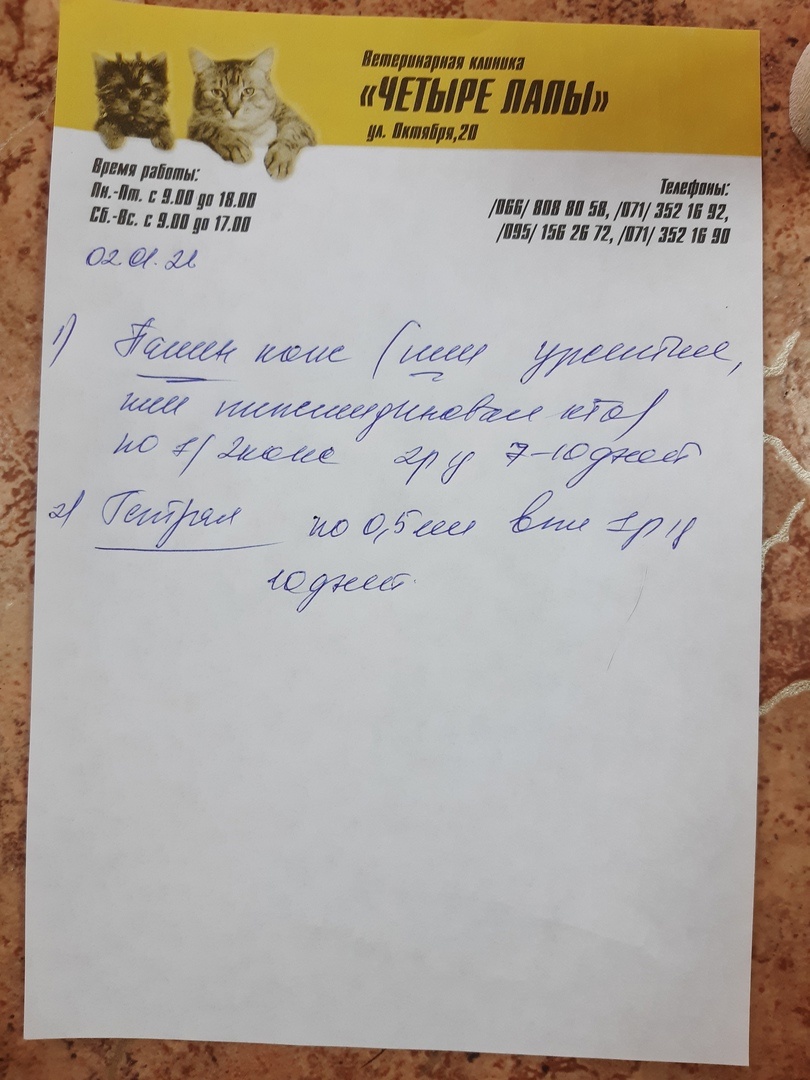 Ветеринарная клиника
«ЧЕТЫРЕ ЛАПЫ»
ул. Октября,20
Время работы:
Пн.-Пт. с 9.00 до 18.00
Сб.-Вс. с 9.00 до 17.00
Телефоны:
/066/ 808 80 58, /071/ 352 16 92,
/095/ 156 26 72, /071/ 352 16 90
02.01.21
1) Палин капс (или
или
по 1/2капс 2р д 7-10дней
2) по 0,5мл в/м 1р д
10дней